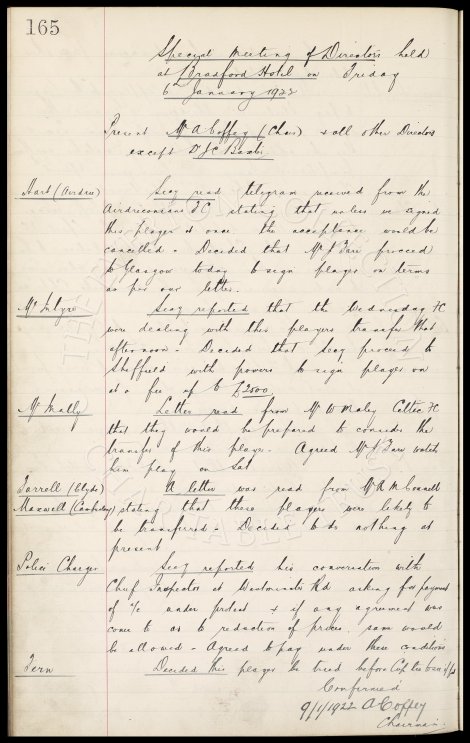 165
Special Meeting of Directors held
at Bradford Hotel on Friday
6 January 1922
Present Mr A Coffey (Chair) & all other Directors
except Dr J C Baxter.
Hart (Airdrie) Secy read telegram received from the
Airdrieonians FC stating that unless we signed
this player at once the acceptance would be
cancelled - Decided that Mr J Fare proceed
to Glasgow today to sign player on terms
as per our letter.
McIntyre Secy reported that the Wednesday FC
were dealing with this players transfer that
afternoon - Decided that Secy proceed to
Sheffield with powers to sign player on
at a fee up to £2000
McNally Letter read from Mr W Maley Celtic FC
that they would be prepared to consider the
transfer of this player - Agreed Mr J Fare watch
him play on Sat
Farrell (Clyde) A letter was read from Mr A McConnell
Maxwell stating that these players were likely to
be transferred - Decided to do nothing at
present
Police Charges Secy reported his conversation with
Chief Inspector at Westminster Rd asking for payment
of a/c under protest & if any agreement was
come to as to reduction of prices, same would
be allowed - Agreed to pay under these conditions
Fern Decided this player be tried before Cup tie
Confirmed
9/1/1922 A Coffey
Chairman.